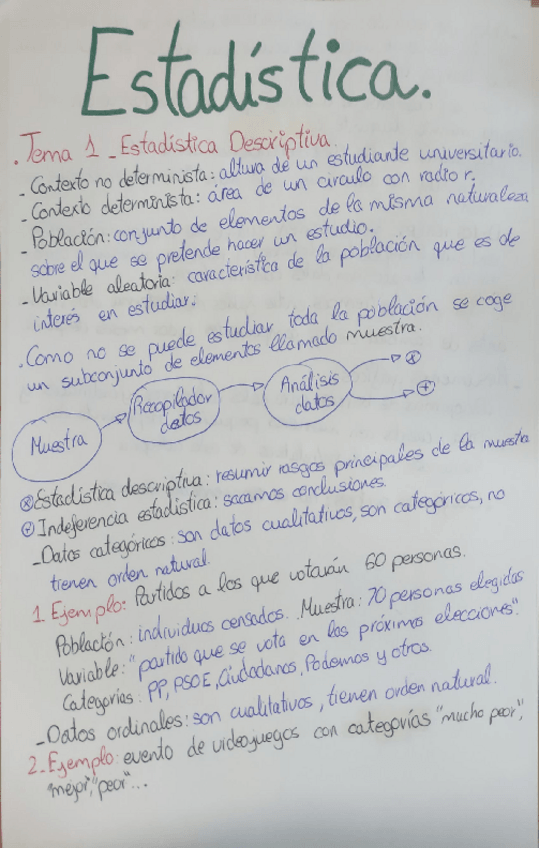 Estadística.
. Tema 1 - Estadística Descriptiva.
- Contexto no determinista: altura de un estudiante universitario.
- Contexto determinista: área de un circulo con radio r.
- Población: conjunto de elementos de la misma naturaleza
sobre el que se pretende hacer un estudio.
- Variable aleatoria: característica de la población que es de
interés en estudiar.
. Como no se puede estudiar toda la población se coge
un subconjunto de elementos llamado muestra.
Muestra
Recopilador
datos
Análisis
datos
ⓧ
⊕
ⓧ Estadística descriptiva: resumir rasgos principales de la muestra
⊕ Indeferencia estadística: sacamos conclusiones.
- Datos categóricos: son datos cualitativos, son categóricos, no
tienen orden natural.
1. Ejemplo: Partidos a los que votarán 60 personas.
Población: individuos censados. Muestra: 70 personas elegidas
Variable: "partido que se vota en las próximas elecciones".
Categorías: PP, PSOE, Ciudadanos, Podemos y otros.
- Datos ordinales: son cualitativos, tienen orden natural.
2. Ejemplo: evento de videojuegos con categorías "mucho peor",
"mejor", "peor"...